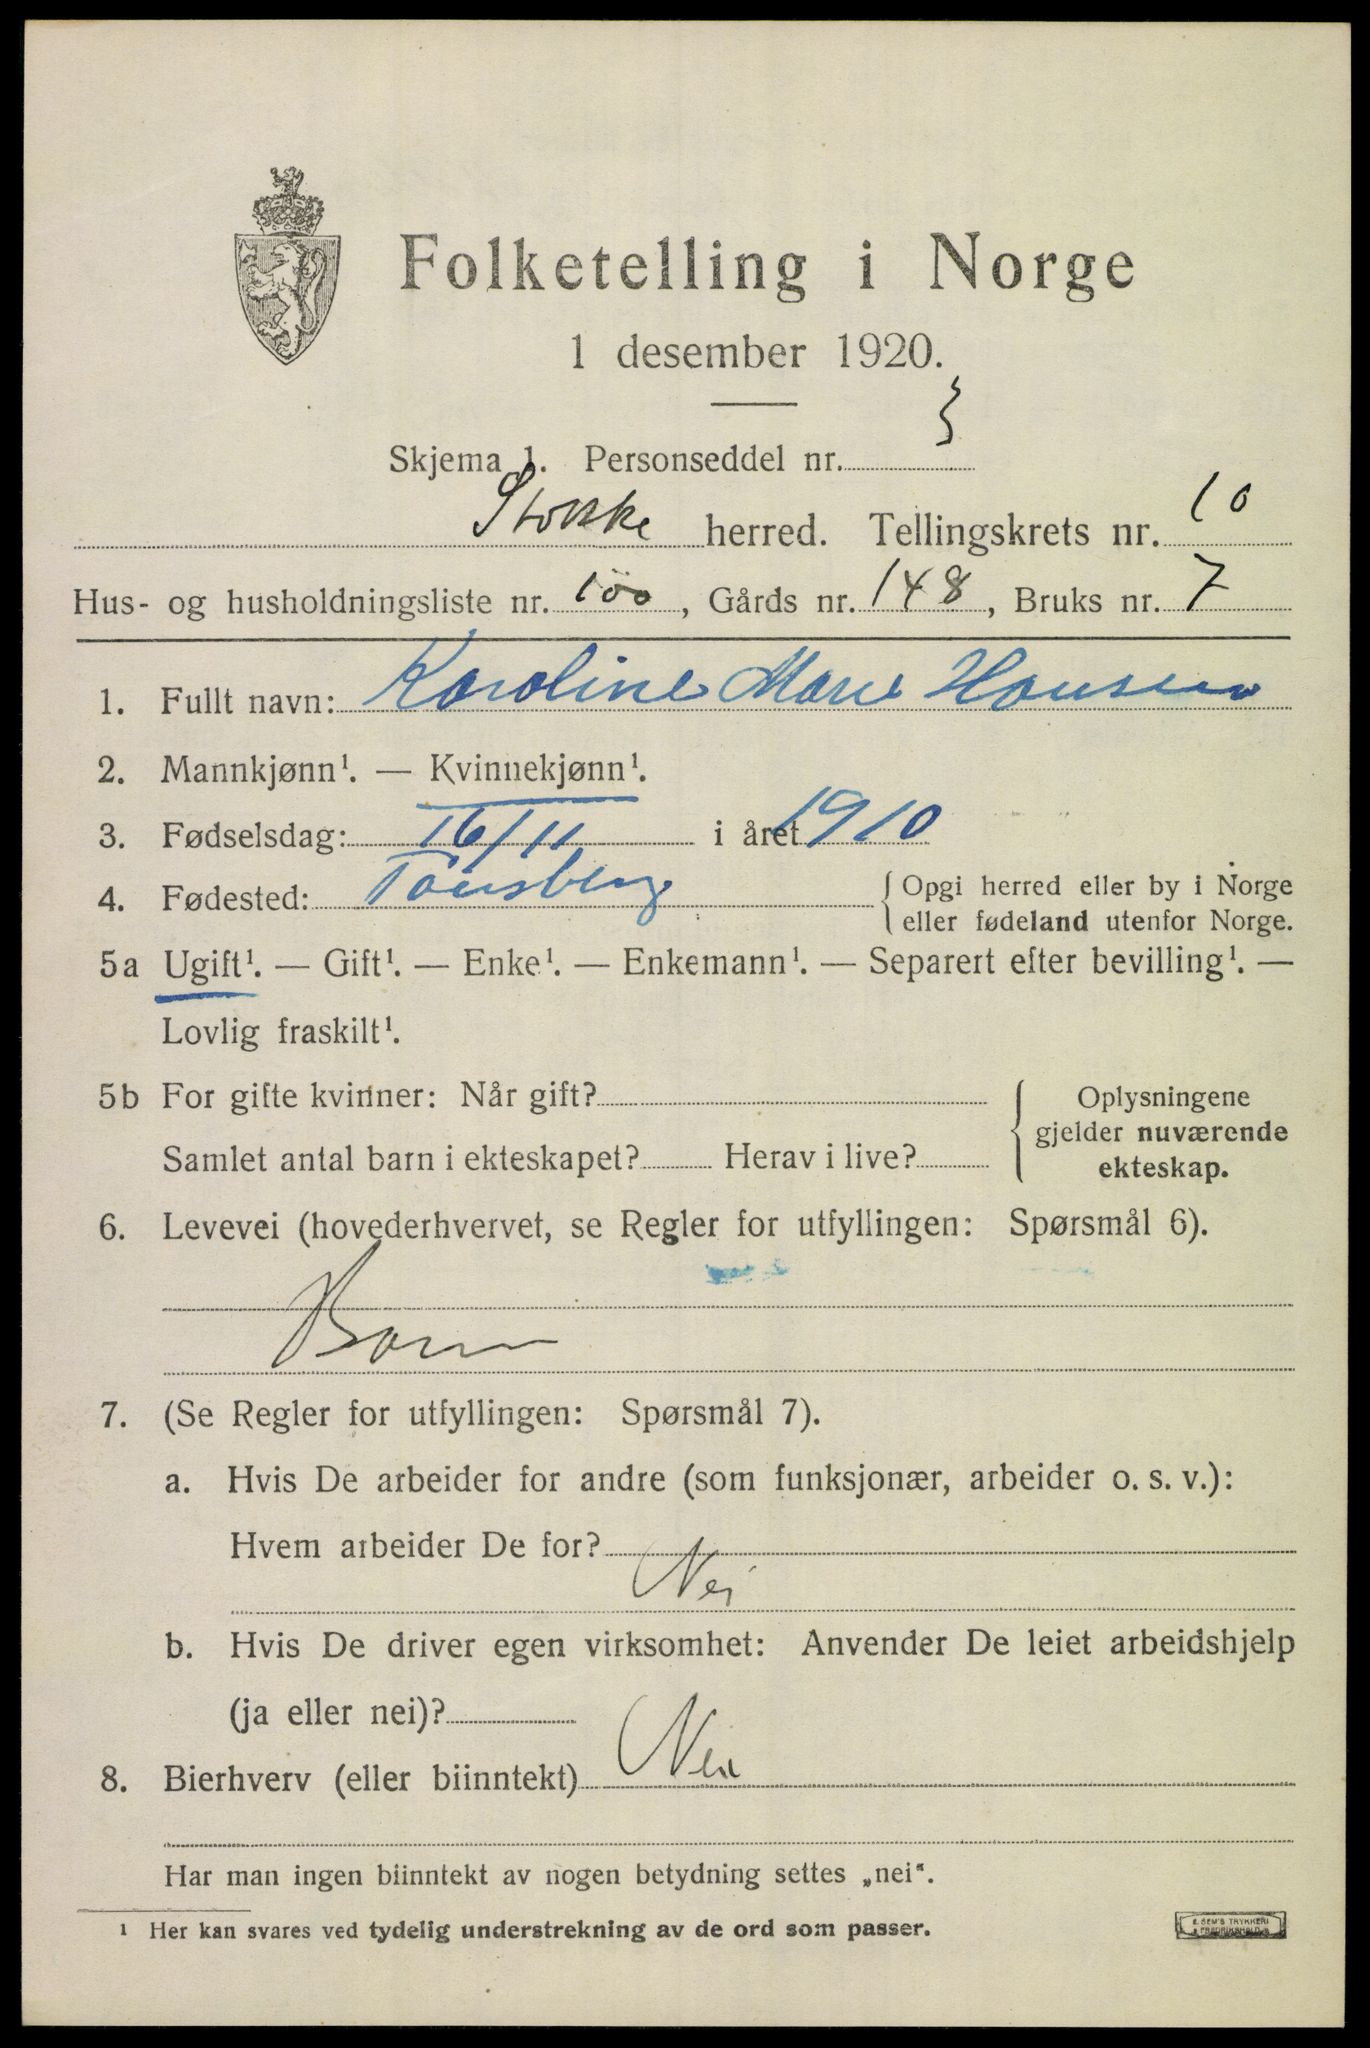 Folketelling i Norge
1 desember 1920.
Skjema 1. Personseddel nr. 3
Stokke herred. Tellingskrets nr. 10
Hus- og husholdningsliste nr. 100, Gårds nr. 148, Bruks nr. 7
1. Fullt navn: Karoline Marie Hansen
2. Mannkjønn¹. — Kvinnekjønn¹.
3. Fødselsdag: 16/11 i året 1910
4. Fødested: Tønsberg { Opgi herred eller by i Norge
eller fødeland utenfor Norge.
5a Ugift¹. — Gift¹. — Enke¹. — Enkemann¹. — Separert efter bevilling¹. —
Lovlig fraskilt¹.
5b For gifte kvinner: Når gift? { Oplysningene
gjelder nuværende
Samlet antal barn i ekteskapet? Herav i live?
ekteskap.
6. Levevei (hovederhvervet, se Regler for utfyllingen: Spørsmål 6).
Barn
7. (Se Regler for utfyllingen: Spørsmål 7).
a. Hvis De arbeider for andre (som funksjonær, arbeider o. s. v.):
Hvem arbeider De for?
Nei
b. Hvis De driver egen virksomhet: Anvender De leiet arbeidshjelp
(ja eller nei)?
8. Bierhverv (eller biinntekt) Nei
Har man ingen biinntekt av nogen betydning settes „nei“.
¹ Her kan svares ved tydelig understrekning av de ord som passer.
E. SEM'S TRYKKERI
FREDRIKSHALD